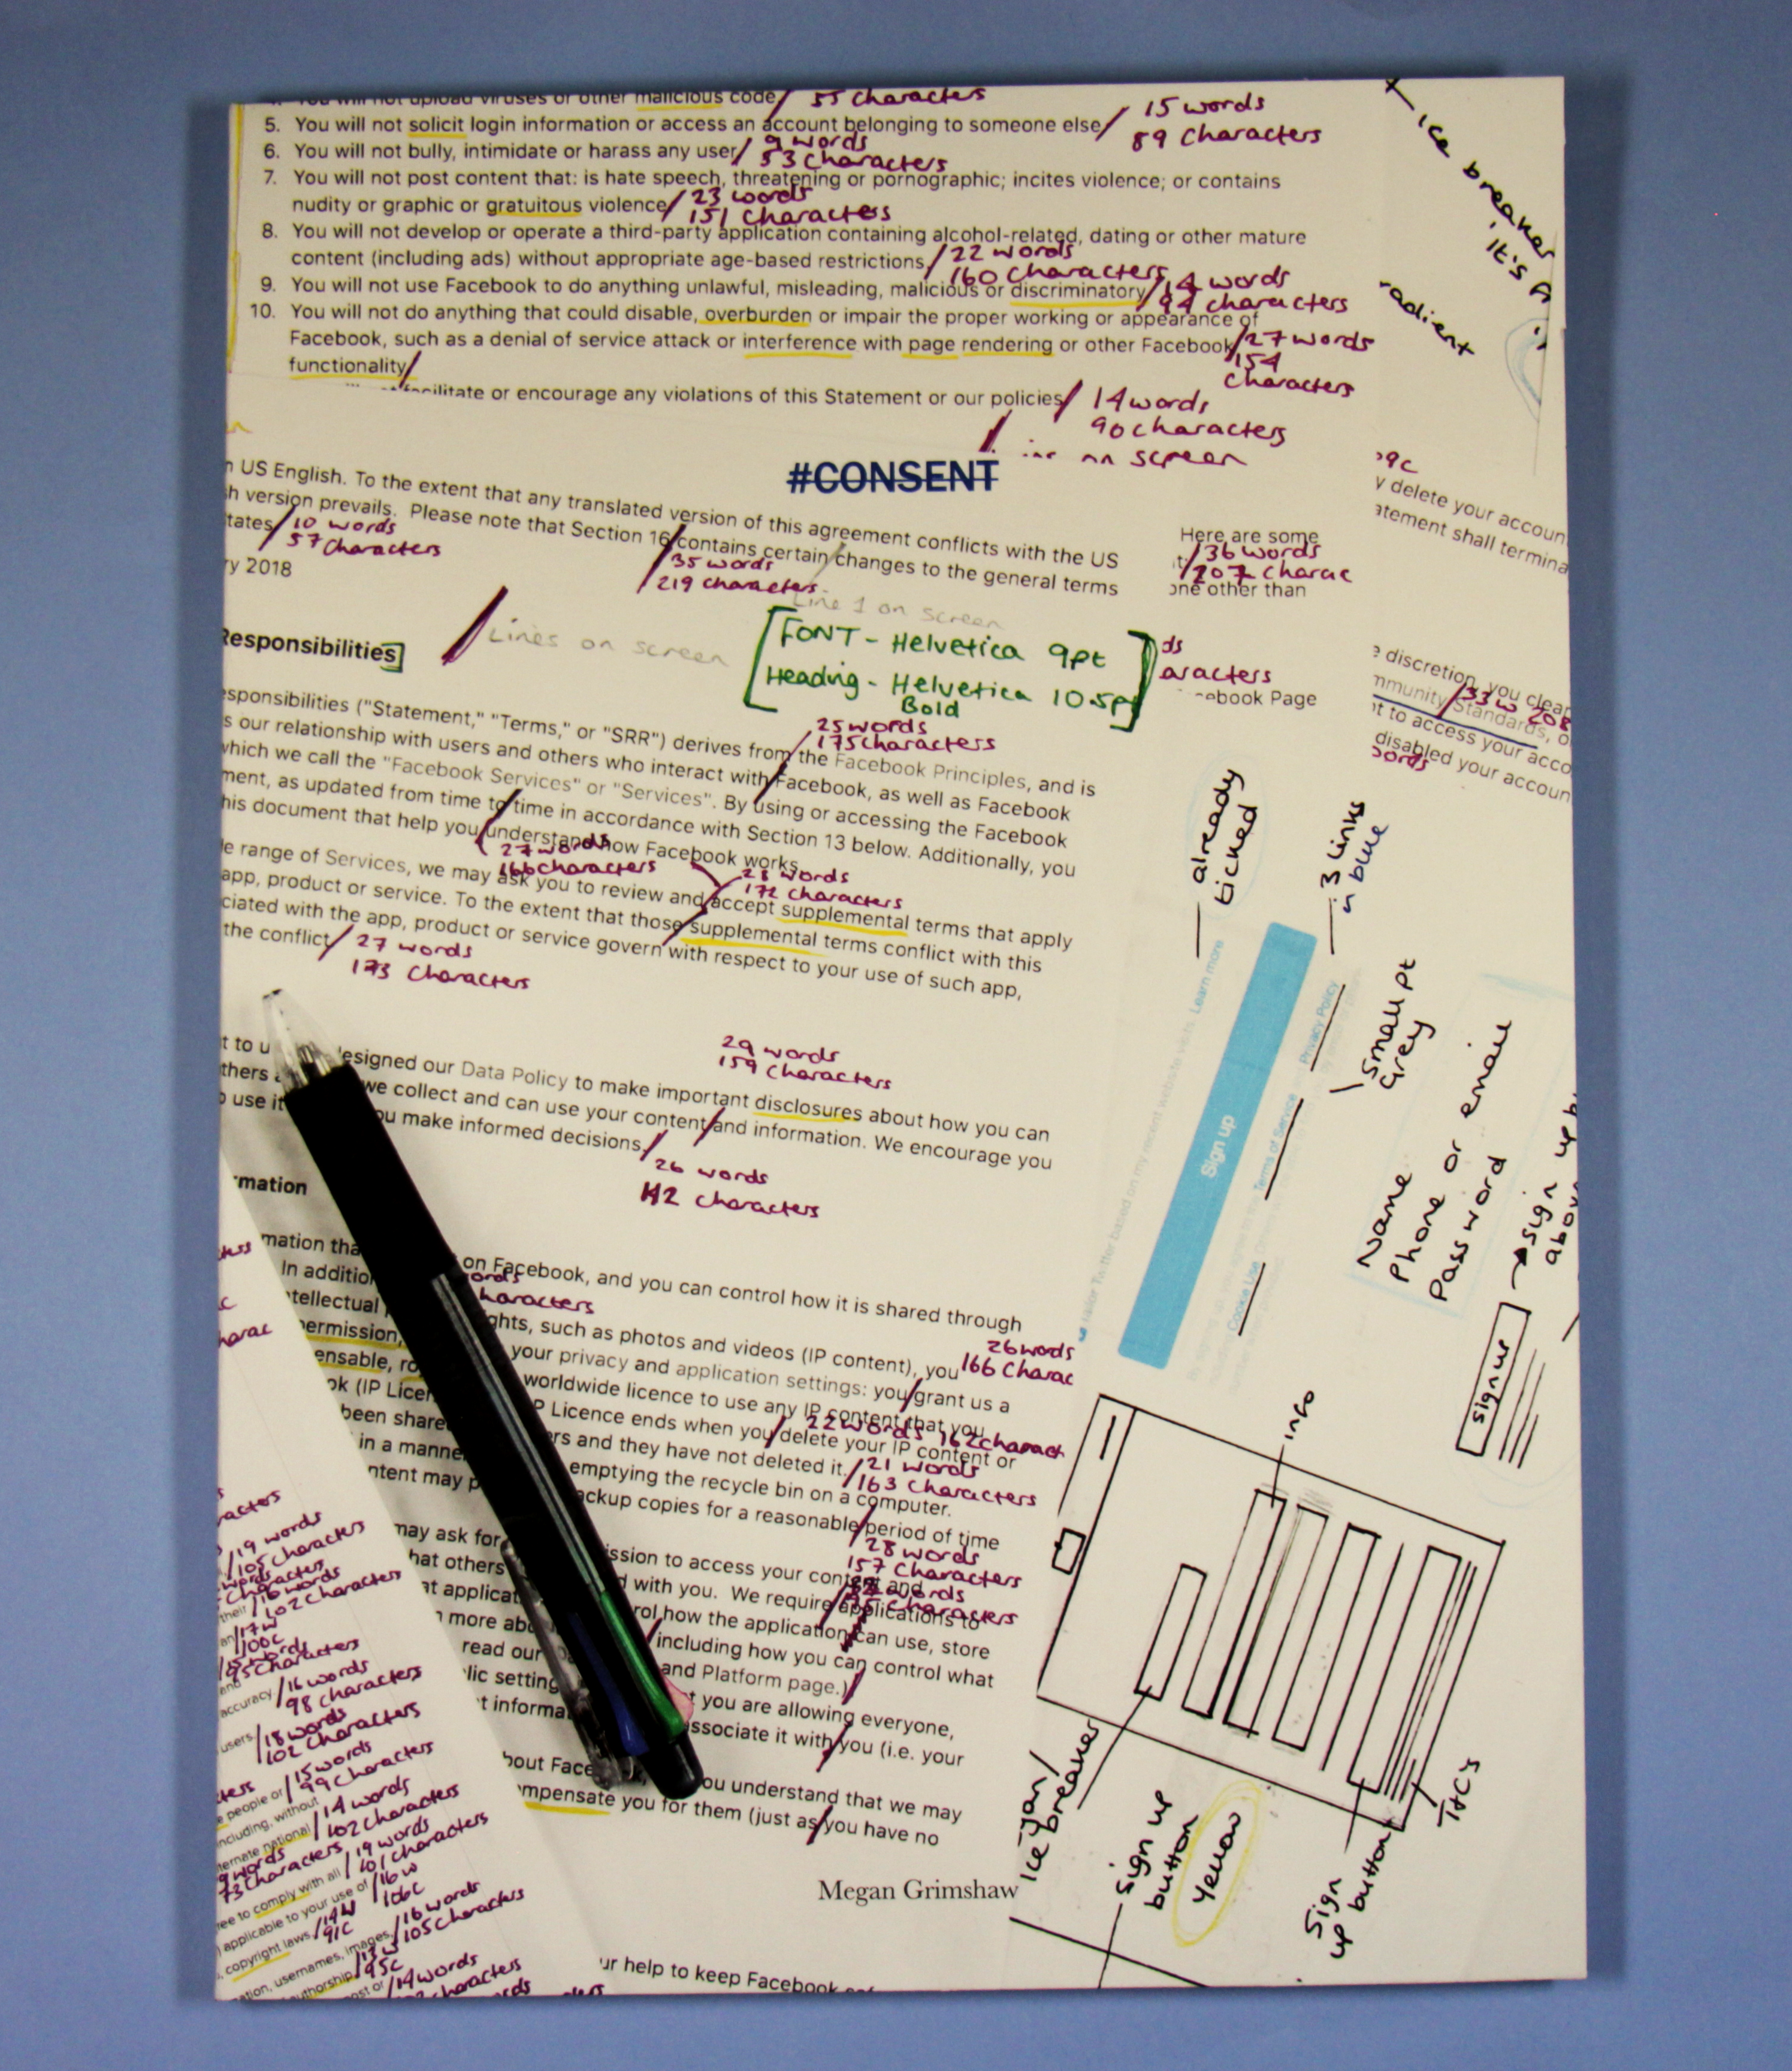 You will not upload viruses or other malicious code/ 55 characters
5. You will not solicit login information or access an account belonging to someone else/ 15 words
89 characters
6. You will not bully, intimidate or harass any user/ 9 words
53 characters
7. You will not post content that: is hate speech, threatening or pornographic; incites violence; or contains
nudity or graphic or gratuitous violence/ 23 words
151 characters
8. You will not develop or operate a third-party application containing alcohol-related, dating or other mature
content (including ads) without appropriate age-based restrictions/ 22 words
160 characters
9. You will not use Facebook to do anything unlawful, misleading, malicious or discriminatory/ 14 words
94 characters
10. You will not do anything that could disable, overburden or impair the proper working or appearance of
Facebook, such as a denial of service attack or interference with page rendering or other Facebook/ 27 words
functionality/
154
characters
facilitate or encourage any violations of this Statement or our policies/ 14 words
90 characters
on screen
Ice breaker
it's
#CONSENT
US English. To the extent that any translated version of this agreement conflicts with the US
version prevails. Please note that Section 16 contains certain changes to the general terms
tates/ 10 words
57 characters
35 words
219 characters
ry 2018
Here are some
36 words
207 charac
one other than
9c
y delete your accoun
atement shall termina
Line 1 on screen
Lines on screen
Responsibilities]
[FONT - Helvetica 9pt
Heading - Helvetica 10.5pt
Bold
ds
aracters
ebook Page
e discretion, you clear
mmunity Standards, o
33w 208
t to access your acco
disabled your accoun
words
esponsibilities ("Statement," "Terms," or "SRR") derives from the Facebook Principles, and is
s our relationship with users and others who interact with Facebook, as well as Facebook
which we call the "Facebook Services" or "Services". By using or accessing the Facebook
ment, as updated from time to time in accordance with Section 13 below. Additionally, you
his document that help you understand how Facebook works.
25 words
175 characters
27 words
166 characters
28 words
172 characters
e range of Services, we may ask you to review and accept supplemental terms that apply
app, product or service. To the extent that those supplemental terms conflict with this
ciated with the app, product or service govern with respect to your use of such app,
the conflict/ 27 words
173 characters
29 words
159 characters
esigned our Data Policy to make important disclosures about how you can
we collect and can use your content and information. We encourage you
ou make informed decisions/
26 words
142 characters
rmation
mation tha on Facebook, and you can control how it is shared through
In addition
haracters
ghts, such as photos and videos (IP content), you
26 words
166 charac
permission, your privacy and application settings: you/grant us a
worldwide licence to use any IP content that you
ok (IP Licen P Licence ends when you/delete your IP content or
22 words 162 charact
been share rs and they have not deleted it/ 21 words
163 characters
in a manne emptying the recycle bin on a computer.
ntent may p ackup copies for a reasonable/period of time
28 words
157 characters
may ask for ission to access your content and
hat others d with you. We require applications to
at applicat rol how the application can use, store
more abo including how you can control what
read our and Platform page.)
lic setting t you are allowing everyone,
t informa associate it with/you (i.e. your
bout Face ou understand that we may
mpensate you for them (just as/you have no
Megan Grimshaw
ur help to keep Facebook
already
ticked
3 links
in blue
small pt
grey
Tailor Twitter based on my recent website visits. Learn more
Sign up
Privacy Policy
Terms of Service
Cookie Use
Name
Phone or email
Password
sign up
above
sign up
info
Icebreaker
sign up
button
yellow
sign
up button
T&C's
19 words
105 characters
16 words
102 characters
17w
100c
95 characters
accuracy/ 16 words
98 characters
users/ 18 words
102 characters
people or/ 15 words
99 characters
including, without
national/ 14 words
102 characters
9 words
73 characters
comply with all/ 19 words
101 characters
applicable to your use of/ 16w
106c
copyright laws/ 14w
91c
ation, usernames, images,/ 16 words
105 characters
authorship/ 13w
95c
14 words
characters